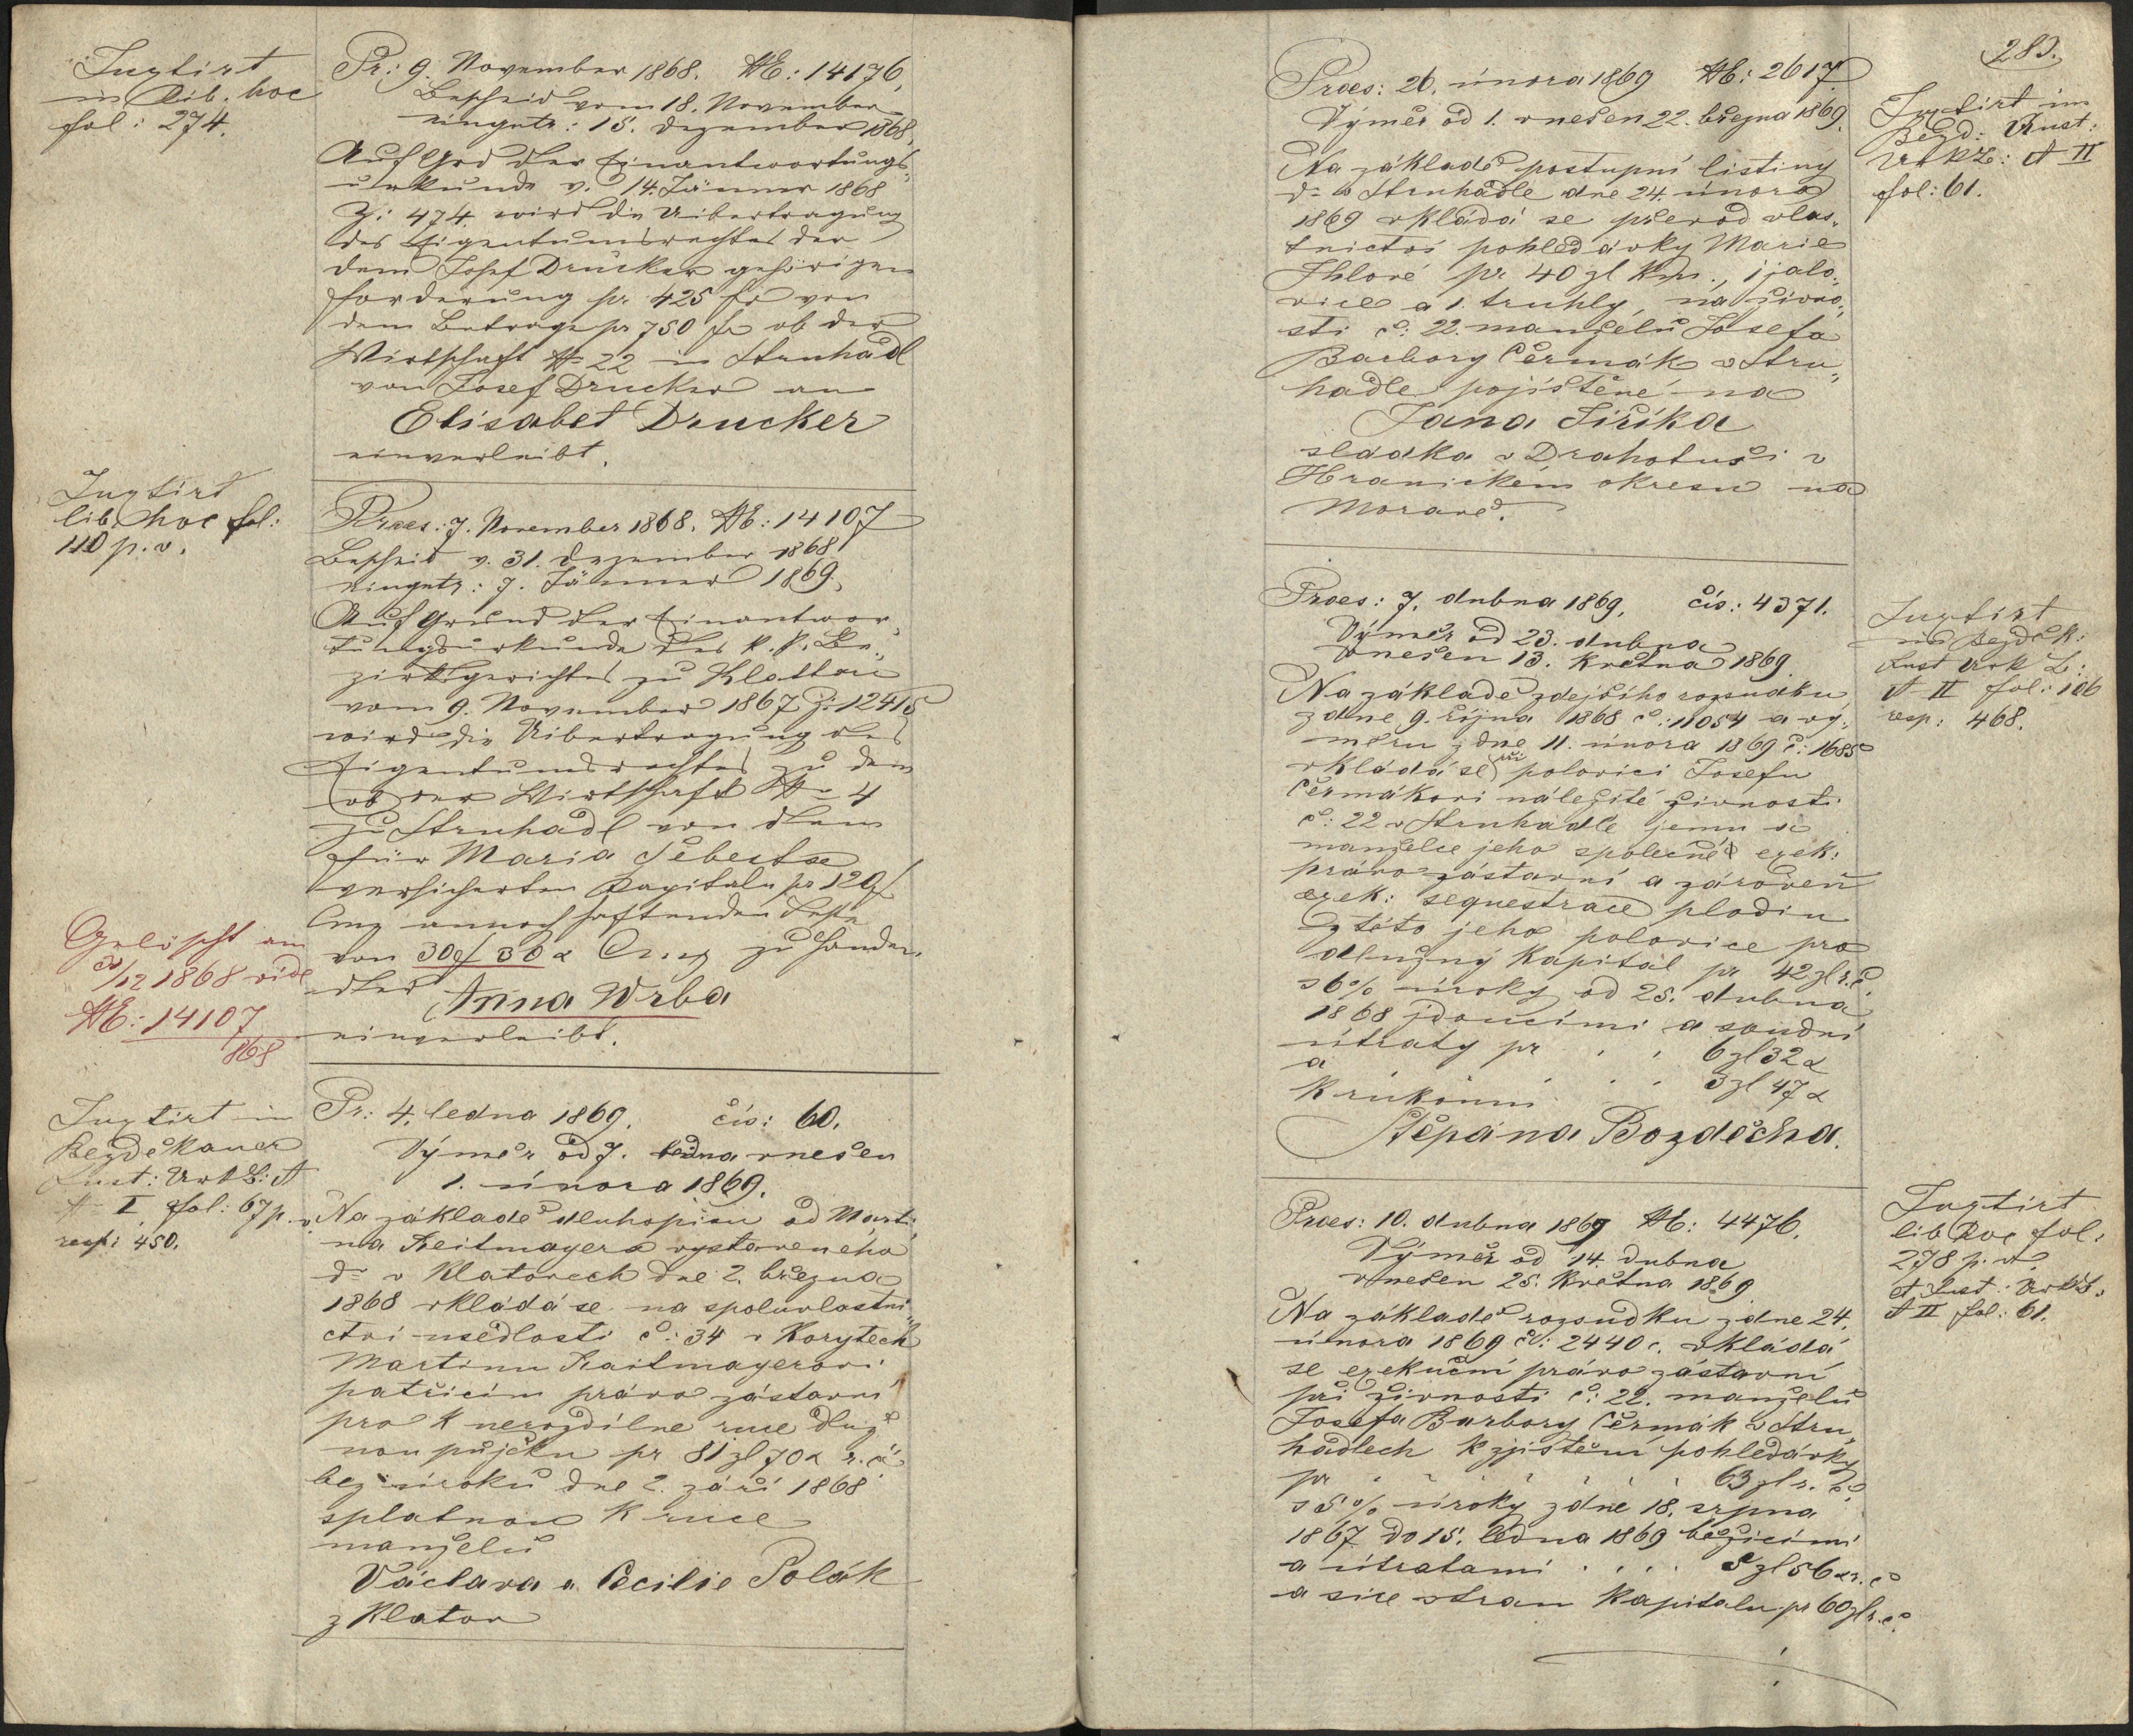 Jngtirt
in Lib. hoc
fol: 274.
Pr: 9. November 1868. NE: 14176,
Bescheid vom 18. November
eingetr: 15. Dezember 1868.
Auf Grd der Einantwortungs„
urkunde v. 14. Jänner 1868
Z: 474. wird die Uibertragung
des Eigentumsrechtes der
dem Josef Drucker gehörigen
Forderung pr. 425 fr von
dem Betrage pr 750 fr ob der
Wirtschaft N 22 in Struhadl
von Josef Drucker an
Elisabet Drucker
einverleibt.
Jngtirt
lib. hoc fol:
110 p. v.
Praes: 7. November 1868. NE: 14107
Bescheid v. 31. Dezember 1868
eingetr: 7. Jänner 1869.
Auf Grund der Einantwor„
tungsurkunde des k. k. Be„
zirksgerichtes zu Klattau
vom 9. November 1867 Z: 12415
wird die Uibertragung des
Eigentumsrechtes zu dem
ob der Wirtschaft N 4
zu Struhadl von dem
für Maria Šebesta
versicherten Kapitale pr 120 f
Cmz annoch haftenden Reste
von 30 f 30 x Cmz zu Handen
der Anna Wrba
einverleibt.
Gelöscht am
/12 1868 vide
NE: 14107
868
Jngtirt in
Bezděkauer
Inst: Urk B: A
I fol: 67 p. v
resp: 450.
Pr: 4. ledna 1869. čís: 60.
Výměr od 7. ledna vnešen
1. února 1869.
Na základě dluhopisu od Marti„
na Reitmayera vystaveneho
dº v Klatovech dne 2. března
1868 vkládá se na spoluvlastni„
ctví usedlosti č: 34 v Korytech
Martinu Raitmayerovi
patřícím právo zástavní
pro k nerozdílne ruce dluž„
nou pujčku pr 81 zl 70 x r. č.
bez úroku dne 2. září 1868
splatnou k ruce
manželů
Václava a Cecilie Polák
z Klatov
283.
Praes: 26. února 1869 NE: 2617.
Výměr od 1. vnešen 22. března 1869.
Na základě postupní listiny
dº v Struhadle dne 24. února
1869 vkládá se převod vlas„
tnictví pohledávky Marie
Jhlové pr 40 zl km., 1 jalo„
vice a 1. truhly, na živno„
sti č: 22. manželů Josefa
Barbory Čermák v Stru„
hadle pojištěné na
Jana Jiříka
sládka v Drahotuši v
Hranickém okresu na
Moravě.
Jngtirt im
Bezd: Inst:
Urk B: A II
fol: 61.
Praes: 7. dubna 1869. čís: 4371.
Výměr od 23. dubna
vnešen 13. května 1869
Na základě zdejšího rozsudku
z dne 9. října 1868 č: 11054 a vý„
měru z dne 11. února 1869 č: 1685
vkládá se při polovici Josefu
Čermákovi náležité živnosti
č: 22 v Struhadle jemu a
manželce jeho společné exek:
právo zástavní a zároveň
exek: sequestrace plodin
z této jeho polovice pro
dlužný kapitál pr 42 zl r. č.
s 6% úroky od 25. dubna
1868 jdoucími a soudní
útraty pr . . 6 zl 32 x
a . . . 3 zl 47 x
k rukoum
Štěpána Bozděcha.
Jngtirt
in Bezděk:
Inst Urk B:
A II fol: 106
resp: 468.
Praes: 10. dubna 1869 NE: 4476.
Výměr od 14. dubna
vnešen 25. května 1869
Na základě rozsudku z dne 24.
února 1869 čí: 2440 c. vkládá
se exekuční právo zástavní
při živnosti č: 22. manželů
Josefa Barbory Čermák v Stru„
hadlech k zjištění pohledávky
pr . . . . . 63 zl r. č.
s 5% úroky z dne 18. srpna
1867 do 15. ledna 1869 běžícími
a útratami . . . 5 zl 56 x r. č
a sice stran kapitalu pr 60 zl r. č.
Jngtirt
lib hoc fol.
278 p. v.
et Inst: Urk B.
A II fol: 61.